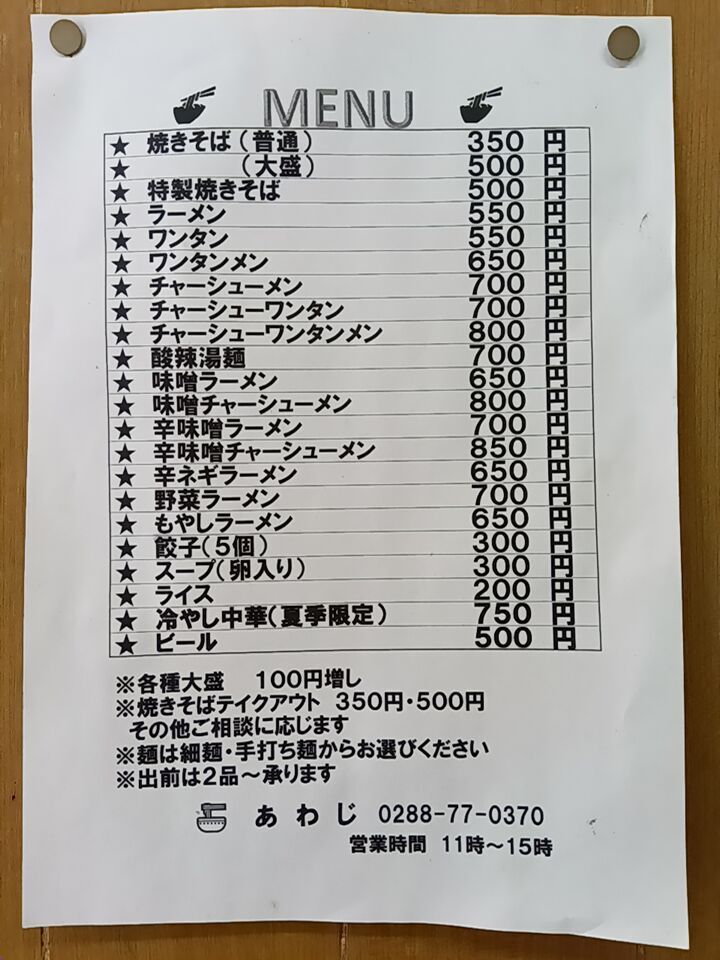 MENU
★ 焼きそば(普通) 350 円
★ (大盛) 500 円
★ 特製焼きそば 500 円
★ ラーメン 550 円
★ ワンタン 550 円
★ ワンタンメン 650 円
★ チャーシューメン 700 円
★ チャーシューワンタン 700 円
★ チャーシューワンタンメン 800 円
★ 酸辣湯麺 700 円
★ 味噌ラーメン 650 円
★ 味噌チャーシューメン 800 円
★ 辛味噌ラーメン 700 円
★ 辛味噌チャーシューメン 850 円
★ 辛ネギラーメン 650 円
★ 野菜ラーメン 700 円
★ もやしラーメン 650 円
★ 餃子(5個) 300 円
★ スープ(卵入り) 300 円
★ ライス 200 円
★ 冷やし中華(夏季限定) 750 円
★ ビール 500 円
※各種大盛 100円増し
※焼きそばテイクアウト 350円・500円
その他ご相談に応じます
※麺は細麺・手打ち麺からお選びください
※出前は2品～承ります
あわじ 0288-77-0370
営業時間 11時～15時